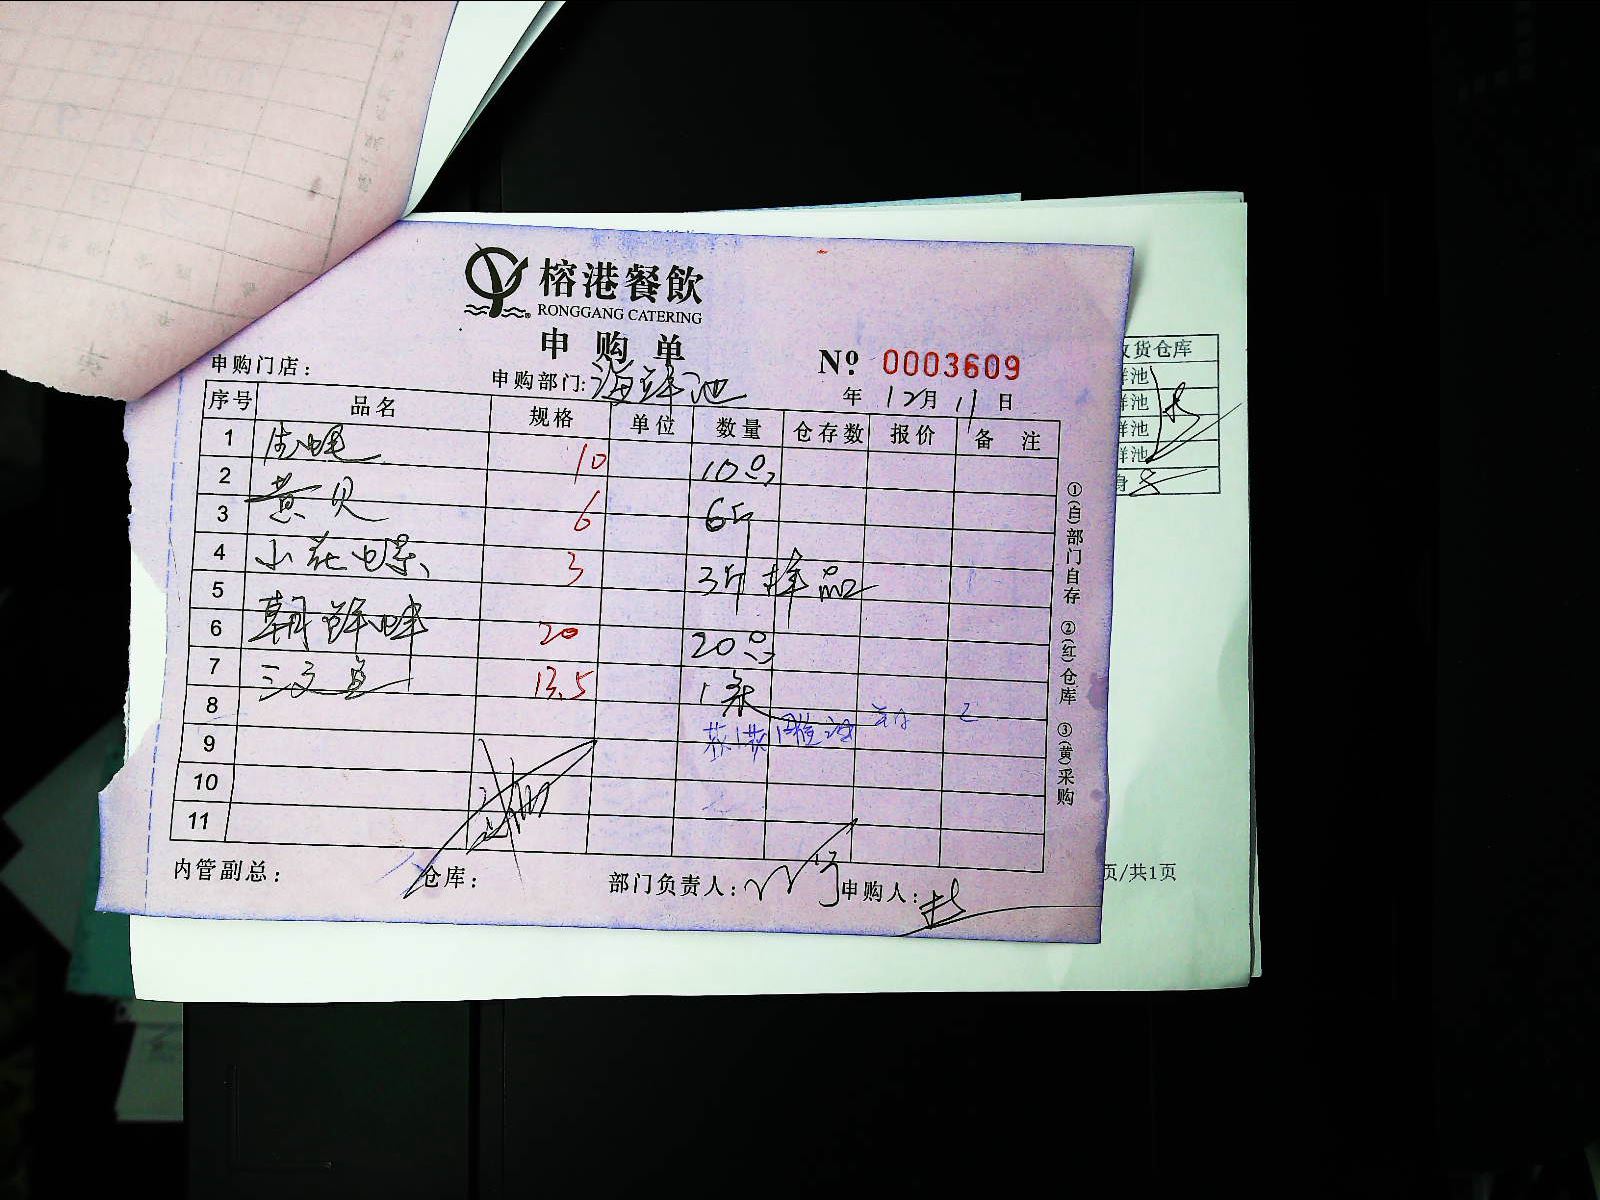 榕港餐飲
RONGGANG CATERING
申购单
№ 0003609
申购门店：
申购部门：海鲜池
年 12月 11日
序号 品名 规格 单位 数量 仓存数 报价 备注
1 10 10只
2 黄贝 6 6斤
3
4 小花螺 3 3斤 样品
5
6 朝鲜蚌 20 20只
7 三文鱼 13.5 1条
8
9
10
11
内管副总：
仓库：
部门负责人：
申购人：
①(白)部门自存 ②(红)仓库 ③(黄)采购
收货仓库
鲜池
鲜池
鲜池
鲜池
身
页/共1页